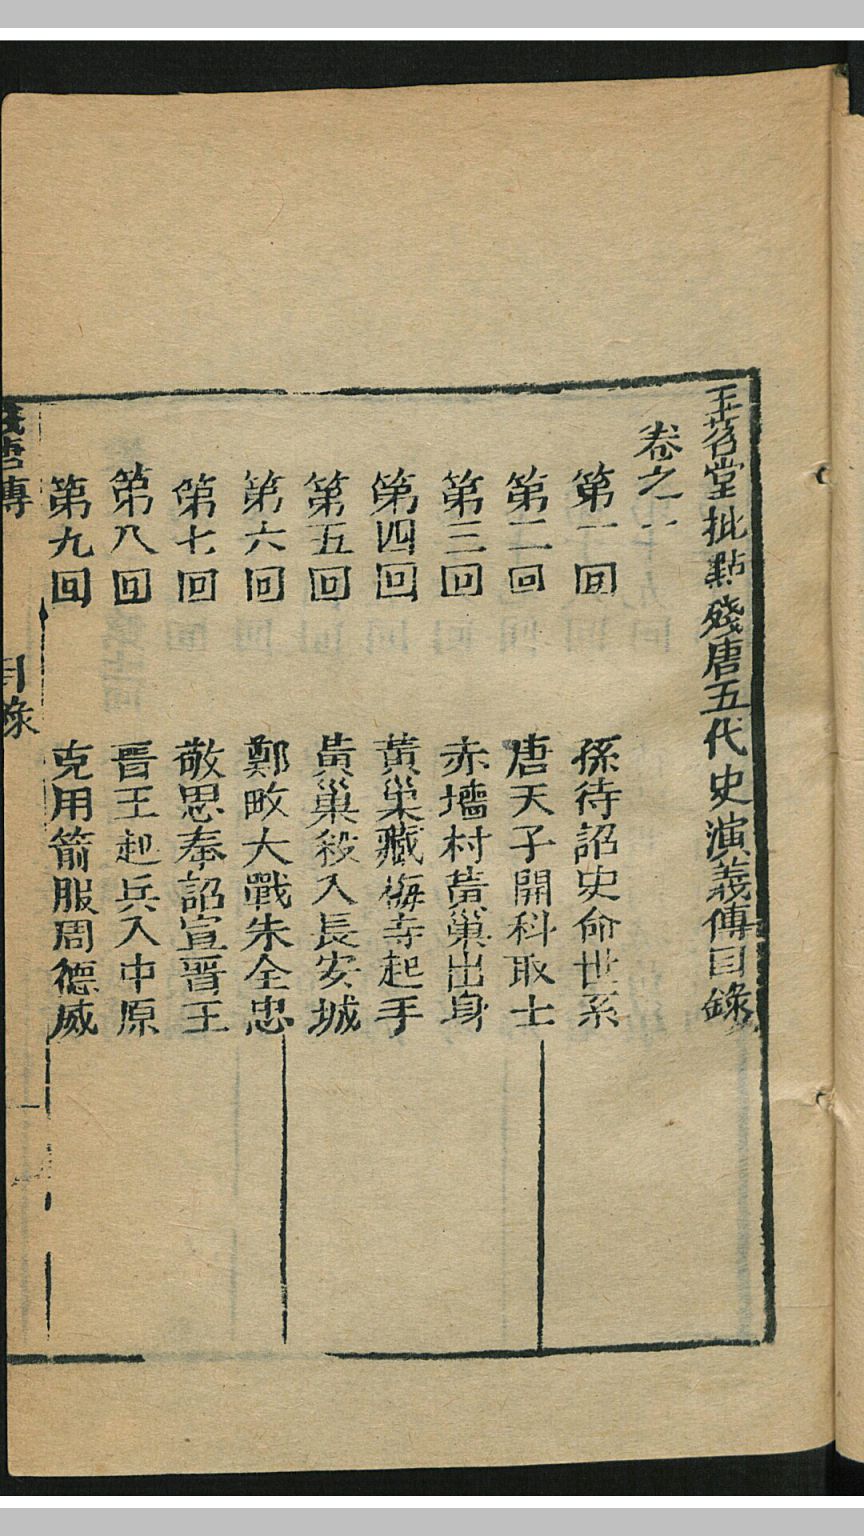 玉茗堂批點殘唐五代史演義傳目錄
卷之一
第一回 孫待詔史命世系
第二回 唐天子開科取士
第三回 赤墻村黃巢出身
第四回 黃巢藏梅寺起手
第五回 黃巢殺入長安城
第六回 鄭畋大戰朱全忠
第七回 敬思奉詔宣晋王
第八回 晋王起兵入中原
第九回 克用箭服周德威
殘唐傳 目錄 一